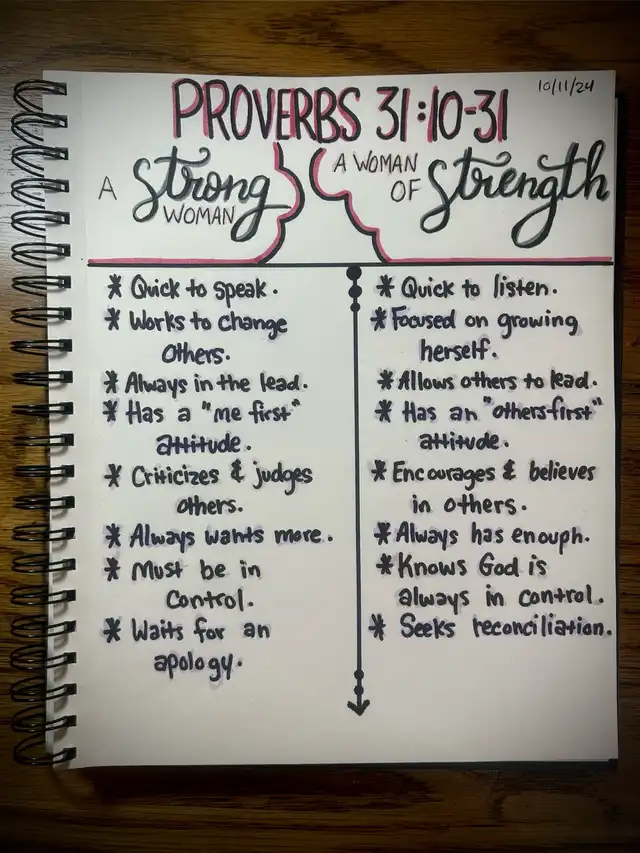 10/11/24
PROVERBS 31:10-31
A Strong
WOMAN
A WOMAN
OF Strength
* Quick to speak.
* Works to change
others.
* Always in the lead.
* Has a "me first"
attitude.
* Criticizes & judges
others.
* Always wants more.
* Must be in
control.
* Waits for an
apology.
* Quick to listen.
* Focused on growing
herself.
* Allows others to lead.
* Has an "others-first"
attitude.
* Encourages & believes
in others.
* Always has enough.
* Knows God is
always in control.
* Seeks reconciliation.